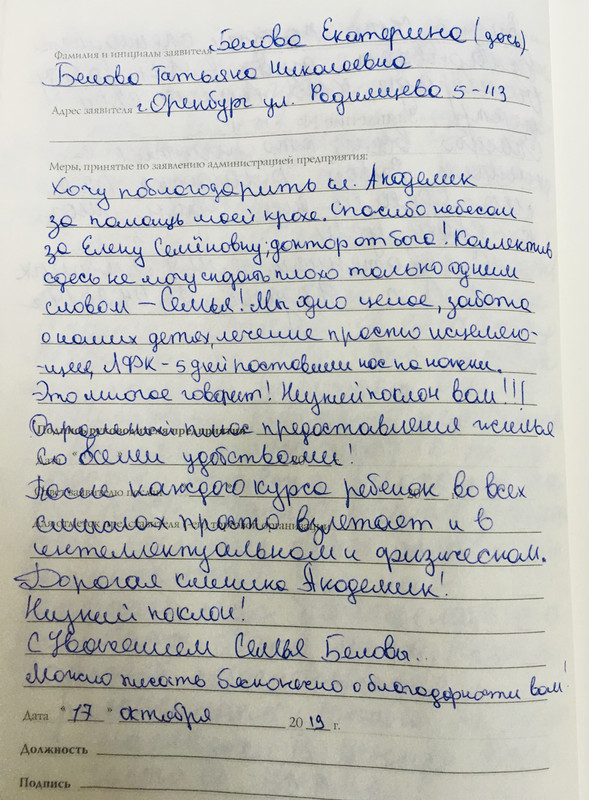 Фамилия и инициалы заявителя Белова Екатерина (дочь)
Белова Татьяна Николаевна
Адрес заявителя г. Оренбург ул. Родимцева 5-113
Меры, принятые по заявлению администрацией предприятия:
Хочу поблагодарить кл. Академик
за помощь моей крохе. Спасибо небесам
за Елену Семёновну, доктор от бога! Коллектив
здесь не могу сказать плохо только одним
словом – Семья! Мы одно целое, забота
о наших детях, лечение просто исцеляю-
-щее, ЛФК – 5 дней поставили нас на ножки.
Это многое говорит! Низкий поклон вам!!!
Огромный плюс предоставления жилья
Со всеми удобствами!
После каждого курса ребенок во всех
смыслах просто взлетает и в
интеллектуальном и физическом.
Дорогая клиника Академик!
Низкий поклон!
С Уважением Семья Беловы..
Можно писать бесконечно о благодарности вам!
Дата "17" октября 2019 г.
Должность
Подпись